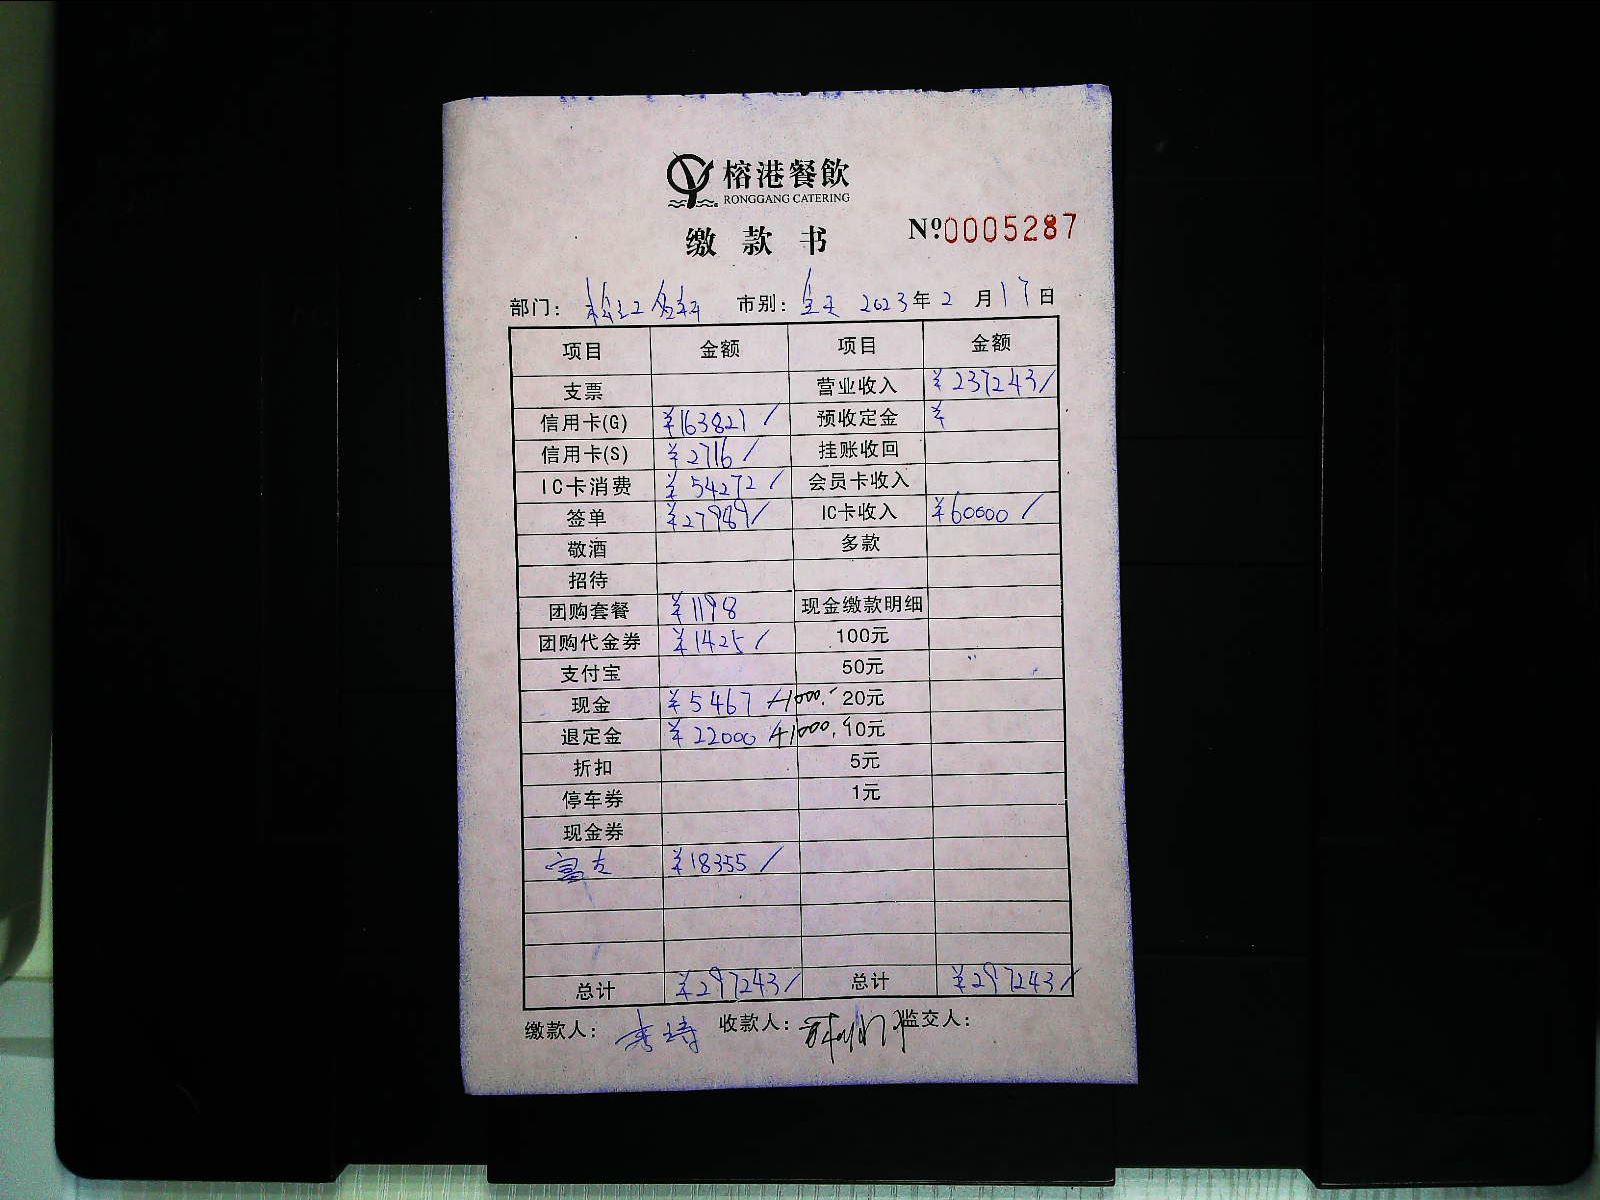 榕港餐飲
RONGGANG CATERING
缴款书 Nº0005287
部门: 松江 市别: 全天 2023年2月17日
项目 金额 项目 金额
支票 营业收入 ¥237243/
信用卡(G) ¥163821/ 预收定金 ¥
信用卡(S) ¥2716/ 挂账收回
IC卡消费 ¥54272/ 会员卡收入
签单 ¥27989/ IC卡收入 ¥60000/
敬酒 多款
招待
团购套餐 ¥1198 现金缴款明细
团购代金券 ¥1425/ 100元
支付宝 50元
现金 ¥5467 -1000. 20元
退定金 ¥22000 +1000. 10元
折扣 5元
停车券 1元
现金券
富友 ¥18355/
总计 ¥297243/ 总计 ¥297243/
缴款人: 收款人: 监交人: